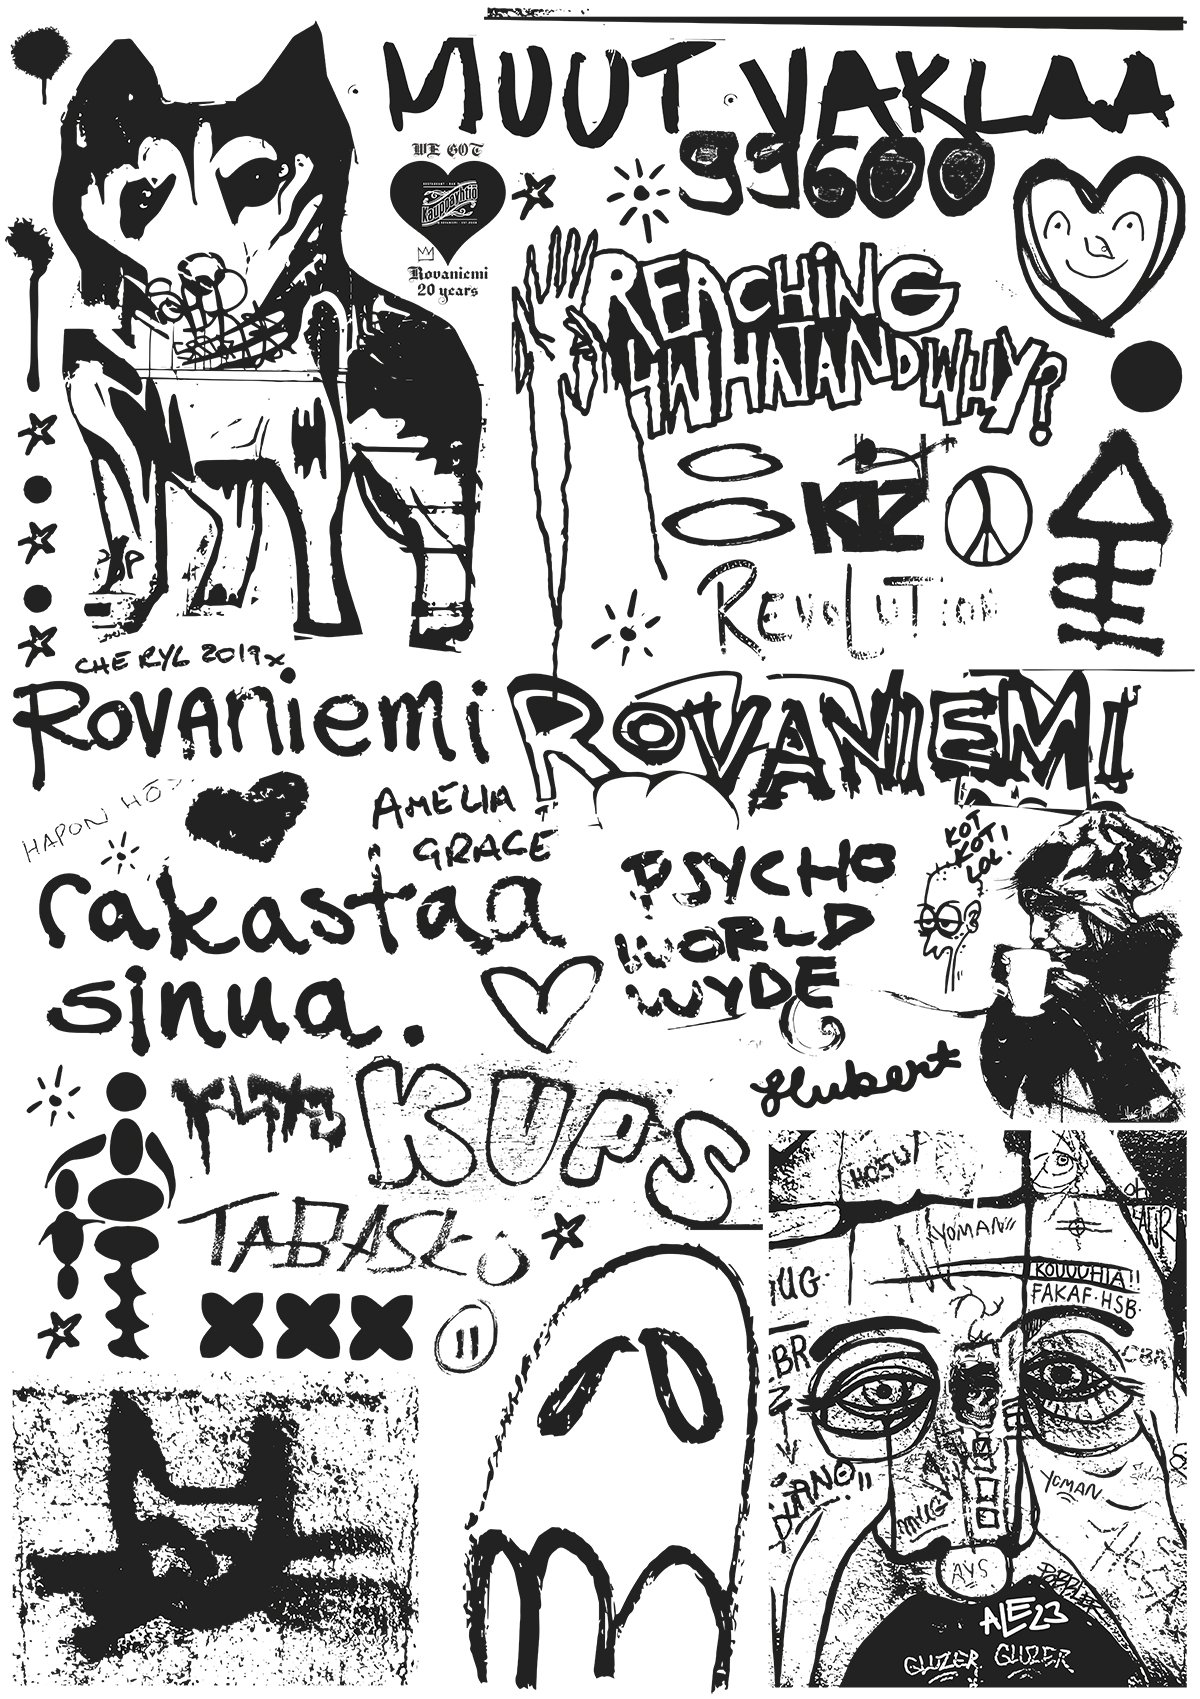 MUUT VAKLAA
99600
WE GOT
Kauppayhtiö
Rovaniemi
20 years
REACHiNG
4WHATANDWHY?
KIZ
REVOLUTION
CHERYL 2019x
ROVANiEMi
ROVANIEMI
HAPON HÖS
AMELIA
GRACE
rakastaa
sinua.
PSYCHO
WORLD
WYDE
KOT
KOT!
LOL!
Hubert
KUPS
TABASKO
HOSU
OH
YOMAN!!
UG.
KOUUUHIA!!
FAKAF.HSB.
BR
CBR
YOMAN
MUG
AYS
ALE23
GLUZER GLUZER